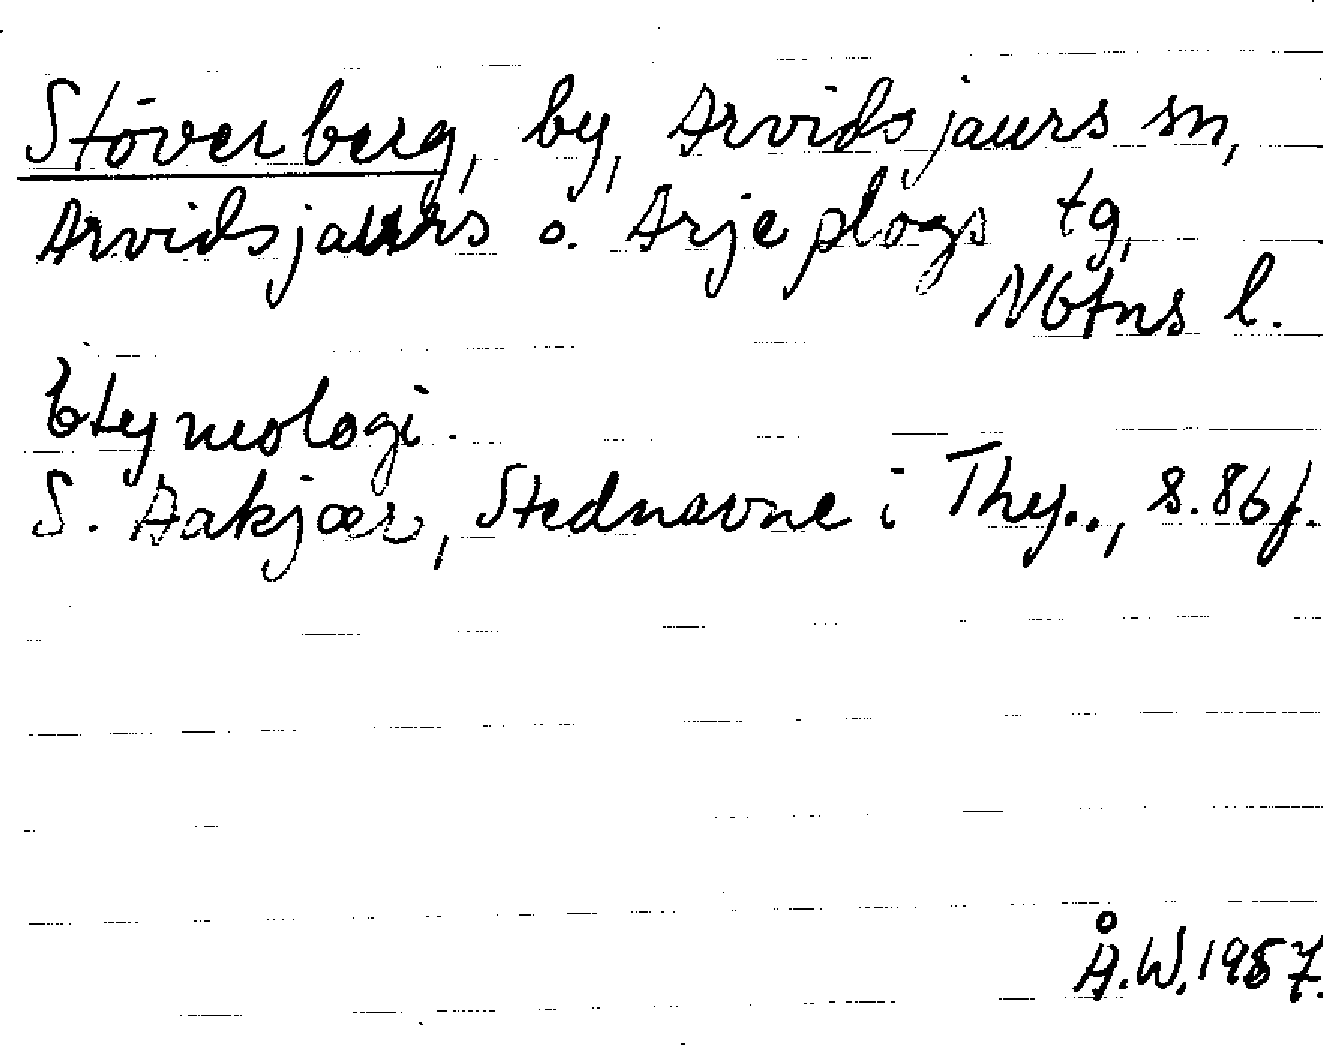 Störerberg, by, Arvidsjaurs sn,
Arvidsjaurs o. Arjeplogs tg,
Nbtns l.
Etymologi.
S. Aakjær, Stednavne i Thy.., s. 86 f.
Å.W. 1987.